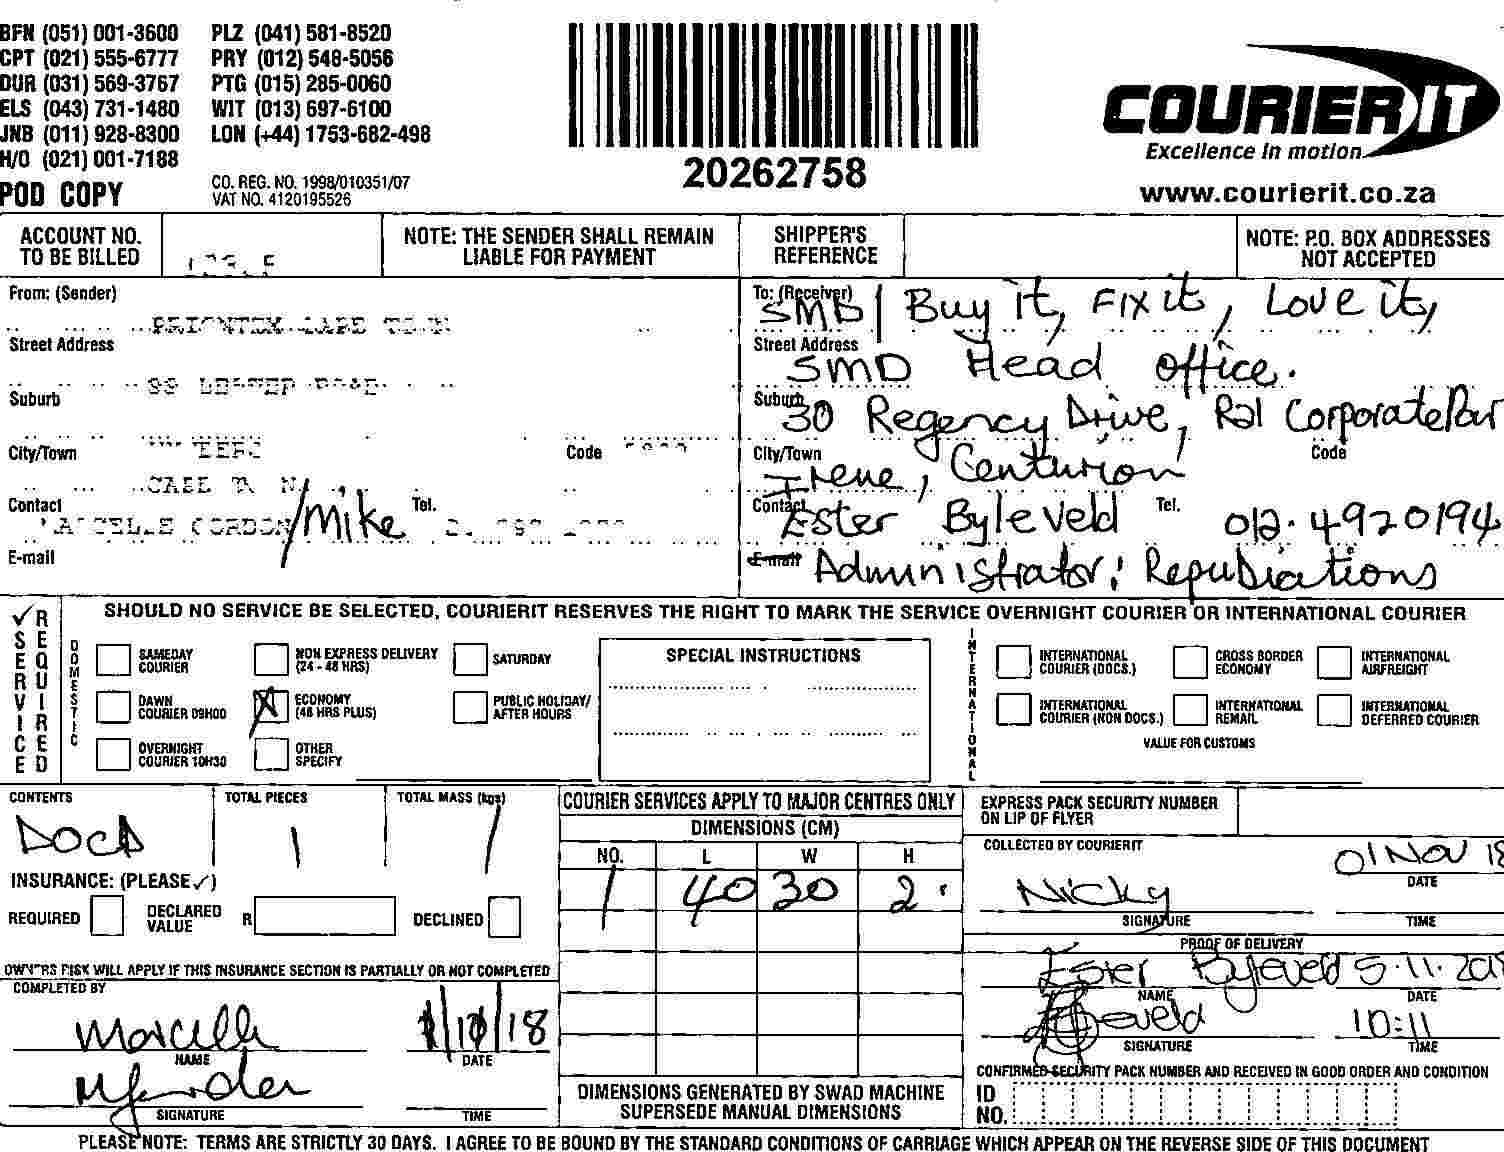 BFN (051) 001-3600 PLZ (041) 581-8520
CPT (021) 555-6777 PRY (012) 548-5056
DUR (031) 569-3767 PTG (015) 285-0060
ELS (043) 731-1480 WIT (013) 697-6100
JNB (011) 928-8300 LON (+44) 1753-682-498
H/O (021) 001-7188
POD COPY
CO. REG. NO. 1998/010351/07
VAT NO. 4120195526
20262758
COURIER IT
Excellence in motion
www.courierit.co.za
ACCOUNT NO. TO BE BILLED
NOTE: THE SENDER SHALL REMAIN LIABLE FOR PAYMENT
SHIPPER'S REFERENCE
NOTE: P.O. BOX ADDRESSES NOT ACCEPTED
From: (Sender)
Street Address
Suburb
City/Town Code
Contact /Mike Tel.
E-mail
To: (Receiver) SMD | Buy it, Fix it, Love it,
Street Address SMD Head Office.
Suburb 30 Regency Drive, R21 Corporate Par
City/Town Irene, Centurion Code
Contact Ester Byleveld Tel. 012. 4920194
E-mail Administrator: Repudiations
✓ SERVICE REQUIRED
SHOULD NO SERVICE BE SELECTED, COURIERIT RESERVES THE RIGHT TO MARK THE SERVICE OVERNIGHT COURIER OR INTERNATIONAL COURIER
DOMESTIC
SAMEDAY COURIER
NON EXPRESS DELIVERY (24 - 48 HRS)
SATURDAY
DAWN COURIER 09H00
X ECONOMY (48 HRS PLUS)
PUBLIC HOLIDAY/ AFTER HOURS
OVERNIGHT COURIER 10H30
OTHER SPECIFY
SPECIAL INSTRUCTIONS
INTERNATIONAL
INTERNATIONAL COURIER (DOCS.)
CROSS BORDER ECONOMY
INTERNATIONAL AIRFREIGHT
INTERNATIONAL COURIER (NON DOCS.)
INTERNATIONAL REMAIL
INTERNATIONAL DEFERRED COURIER
VALUE FOR CUSTOMS
CONTENTS TOTAL PIECES TOTAL MASS (kgs)
Docs 1 1
INSURANCE: (PLEASE ✓)
REQUIRED DECLARED VALUE R DECLINED
OWNERS RISK WILL APPLY IF THIS INSURANCE SECTION IS PARTIALLY OR NOT COMPLETED
COMPLETED BY
Marcelle
NAME DATE
SIGNATURE TIME
COURIER SERVICES APPLY TO MAJOR CENTRES ONLY
DIMENSIONS (CM)
NO. L W H
1 40 30 2
DIMENSIONS GENERATED BY SWAD MACHINE
SUPERSEDE MANUAL DIMENSIONS
EXPRESS PACK SECURITY NUMBER
ON LIP OF FLYER
COLLECTED BY COURIERIT
Nicky 01 Nov 18
SIGNATURE DATE
TIME
PROOF OF DELIVERY
Ester Byleveld 5.11.201
NAME DATE
10:11
SIGNATURE TIME
CONFIRMED SECURITY PACK NUMBER AND RECEIVED IN GOOD ORDER AND CONDITION
ID NO.
PLEASE NOTE: TERMS ARE STRICTLY 30 DAYS. I AGREE TO BE BOUND BY THE STANDARD CONDITIONS OF CARRIAGE WHICH APPEAR ON THE REVERSE SIDE OF THIS DOCUMENT